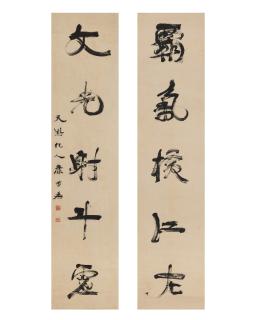 霸氣橫江左
文光射斗虛
天游化人康有為